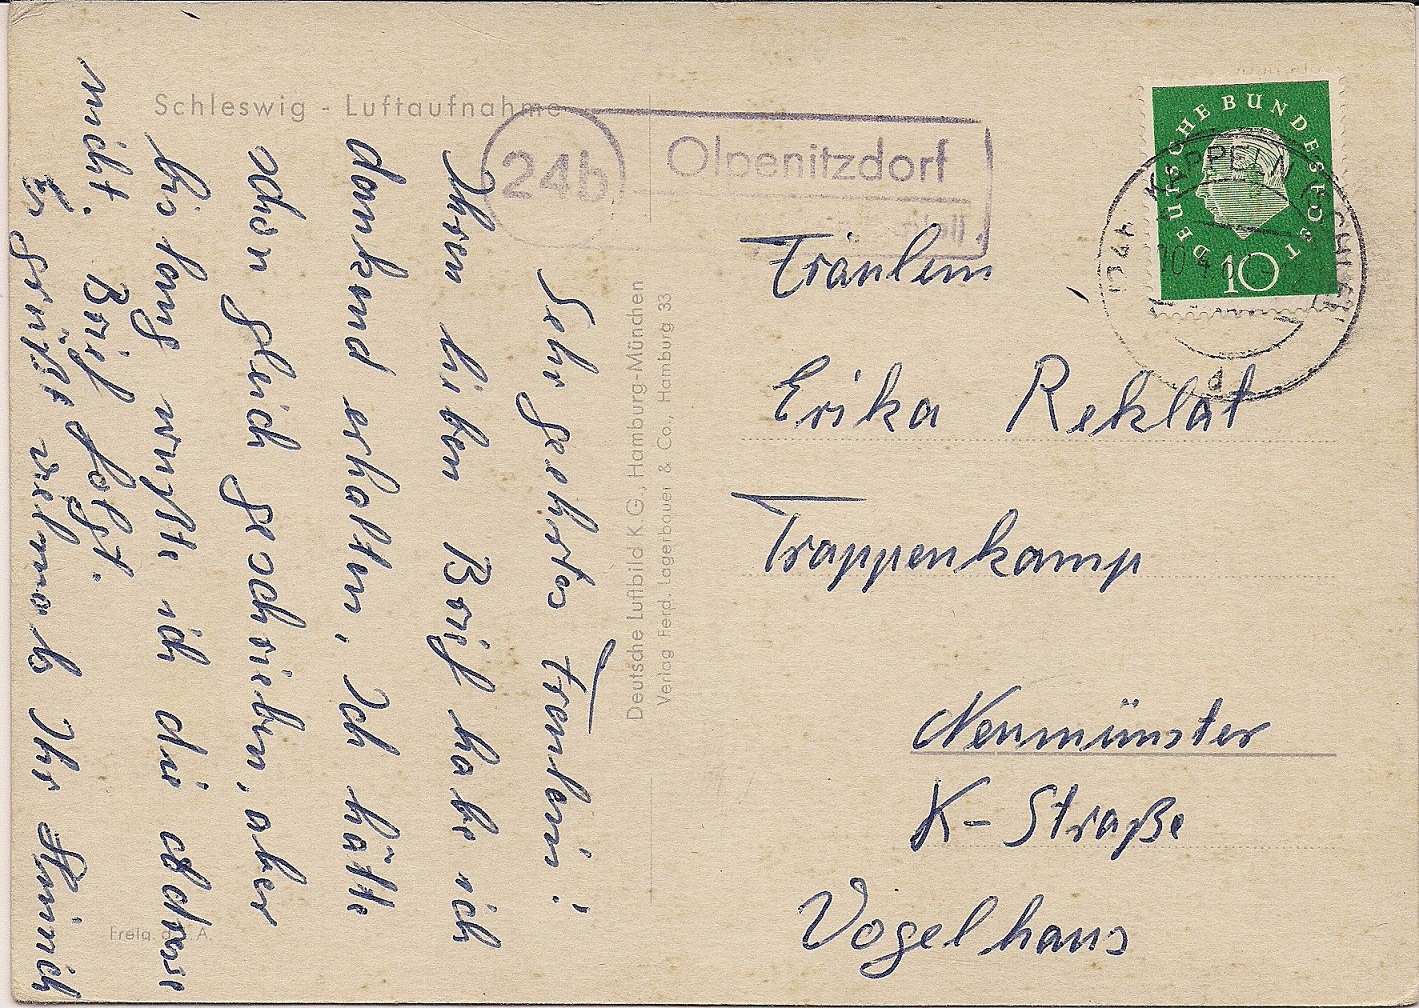 Schleswig - Luftaufnahme
24b
Olpenitzdorf
DEUTSCHE BUNDESPOST
10
KAPPELN
Sehr geehrtes Fräulein!
Ihren lieben Brief habe ich
dankend erhalten, Ich hätte
schon gleich geschrieben, aber
bislang wußte ich die Adresse
nicht. Brief folgt.
Es grüßt vielmals Ihr Heinrich
Deutsche Luftbild K.G., Hamburg-München
Verlag Ferd. Lagerbauer & Co., Hamburg 33
Fräulein
Erika Reklat
Trappenkamp
Neumünster
K-Straße
Vogelhaus